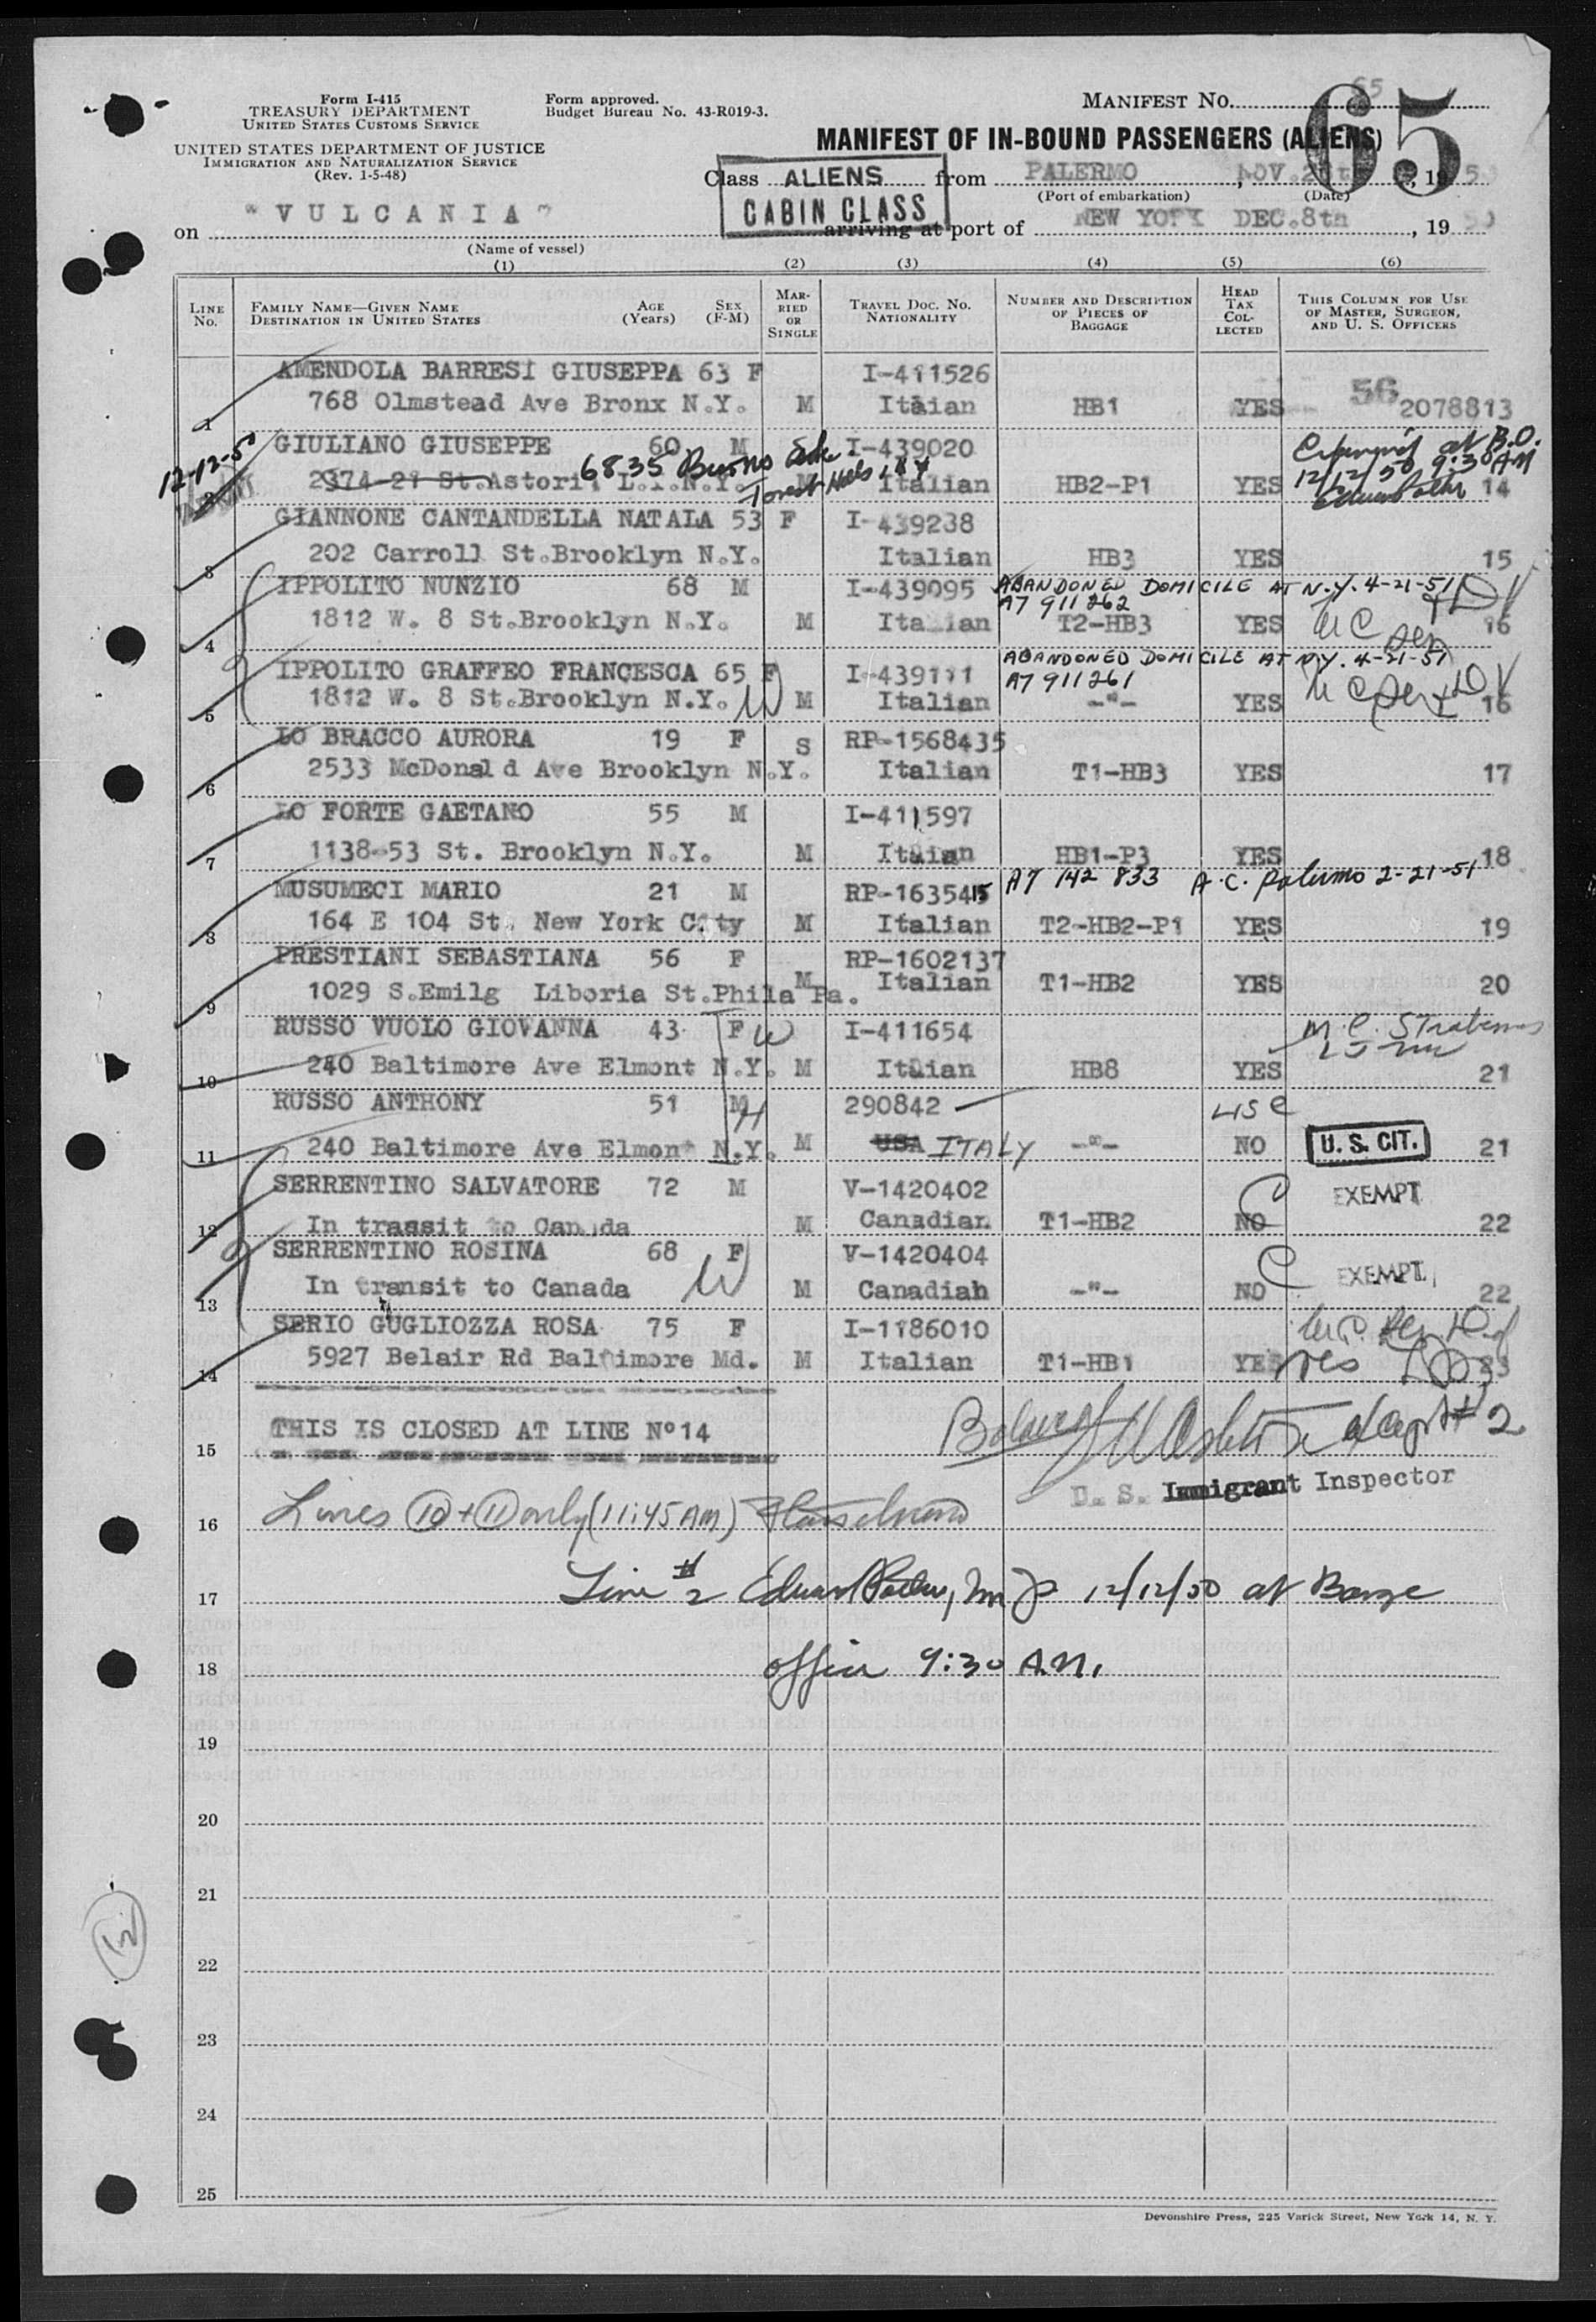 Form I-415
TREASURY DEPARTMENT
UNITED STATES CUSTOMS SERVICE
UNITED STATES DEPARTMENT OF JUSTICE
IMMIGRATION AND NATURALIZATION SERVICE
(Rev. 1-5-48)
Form approved.
Budget Bureau No. 43-R019-3.
MANIFEST NO. 65
65
MANIFEST OF IN-BOUND PASSENGERS (ALIENS)
Class ALIENS from PALERMO, NOV. , 19 50
CABIN CLASS
(Port of embarkation) (Date)
on "VULCANIA" arriving at port of NEW YORK DEC.8th, 19 50
(Name of vessel)
(1) (2) (3) (4) (5) (6)
LINE NO. FAMILY NAME—GIVEN NAME DESTINATION IN UNITED STATES AGE (Years) SEX (F-M) MARRIED OR SINGLE TRAVEL DOC. NO. NATIONALITY NUMBER AND DESCRIPTION OF PIECES OF BAGGAGE HEAD TAX COLLECTED THIS COLUMN FOR USE OF MASTER, SURGEON, AND U. S. OFFICERS
AMENDOLA BARRESI GIUSEPPA 63 F I-411526 56
1 768 Olmstead Ave Bronx N.Y. M Itaian HB1 YES 2078813
12-12-50 GIULIANO GIUSEPPE 60 M I-439020 at B.O.
12/12/50 9:30 AM
2 2374-21 St.Astoria L.I.N.Y. 6835 Burns Forest Hills M Italian HB2-P1 YES 14
GIANNONE CANTANDELLA NATALA 53 F I-439238
3 202 Carroll St.Brooklyn N.Y. Italian HB3 YES 15
IPPOLITO NUNZIO 68 M I-439095 ABANDONED DOMICILE AT N.Y. 4-21-51
A7 911 262
4 1812 W. 8 St.Brooklyn N.Y. M Italian T2-HB3 YES 16
IPPOLITO GRAFFEO FRANCESCA 65 F I-439111 ABANDONED DOMICILE AT N.Y. 4-21-51
A7 911 261
5 1812 W. 8 St.Brooklyn N.Y. W M Italian -"- YES 16
LO BRACCO AURORA 19 F S RP-1568435
6 2533 McDonald Ave Brooklyn N.Y. Italian T1-HB3 YES 17
LO FORTE GAETANO 55 M I-411597
7 1138-53 St. Brooklyn N.Y. M Itaian HB1-P3 YES 18
MUSUMECI MARIO 21 M RP-1635415 A7 142 833 A.C. Palermo 2-21-51
8 164 E 104 St. New York City M Italian T2-HB2-P1 YES 19
PRESTIANI SEBASTIANA 56 F RP-1602137
9 1029 S.Emilg Liboria St.Phila Pa. M Italian T1-HB2 YES 20
RUSSO VUOLO GIOVANNA 43 F W I-411654
10 240 Baltimore Ave Elmont N.Y. M Itaian HB8 YES 21
RUSSO ANTHONY 51 M H 290842 USC
11 240 Baltimore Ave Elmont N.Y. M USA ITALY -"- NO U. S. CIT. 21
SERRENTINO SALVATORE 72 M V-1420402 C EXEMPT
12 In transit to Canada M Canadian T1-HB2 NO 22
SERRENTINO ROSINA 68 F W V-1420404 C EXEMPT
13 In transit to Canada M Canadian -"- NO 22
SERIO GUGLIOZZA ROSA 75 F I-1186010
14 5927 Belair Rd Baltimore Md. M Italian T1-HB1 YES yes 23
15 THIS IS CLOSED AT LINE Nº14
U. S. Immigrant Inspector
16 Lines 10 + 11 only (11:45 AM)
17 Line #2 12/12/50 at Barge
18 office 9:30 A.M.
19
20
21
22
23
24
25
12
Devonshire Press, 225 Varick Street, New York 14, N. Y.